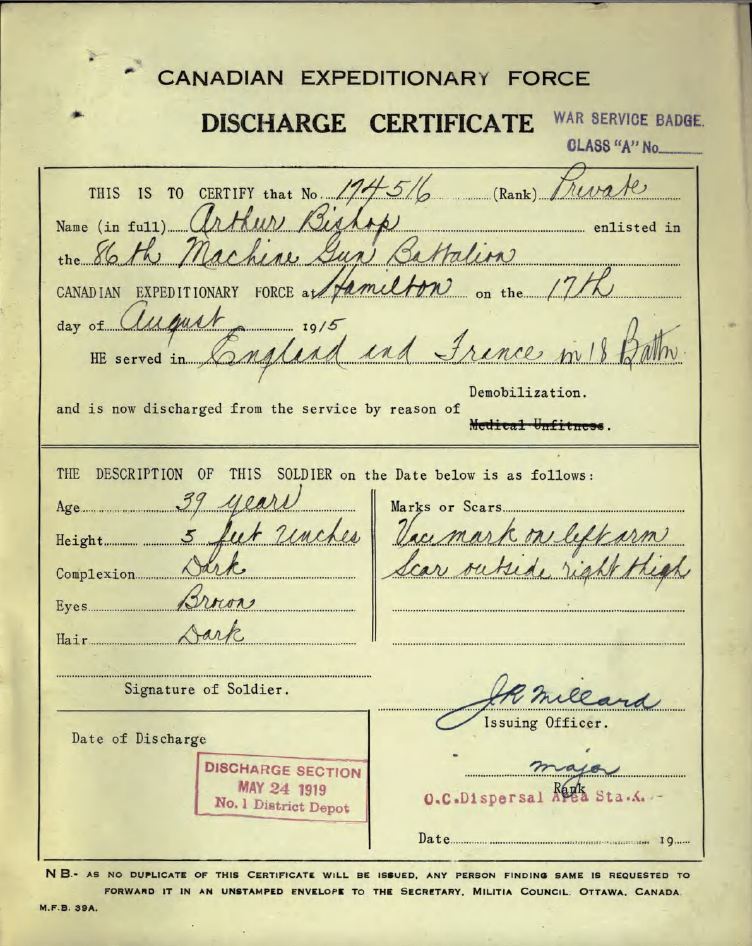 CANADIAN EXPEDITIONARY FORCE
DISCHARGE CERTIFICATE
WAR SERVICE BADGE.
CLASS "A" No
THIS IS TO CERTIFY that No. 174516 (Rank) Private
Name (in full) Arthur Bishop enlisted in
the 86th Machine Gun Battalion
CANADIAN EXPEDITIONARY FORCE at Hamilton on the 17th
day of August 1915
HE served in England and France in 18 Battn.
Demobilization.
and is now discharged from the service by reason of
Medical Unfitness.
THE DESCRIPTION OF THIS SOLDIER on the Date below is as follows:
Age 39 years
Height 5 feet 7 inches
Complexion Dark
Eyes Brown
Hair Dark
Marks or Scars
Vacc mark on left arm
Scar outside right thigh
Signature of Soldier.
J.R. Millard
Issuing Officer.
Date of Discharge
DISCHARGE SECTION
MAY 24 1919
No. 1 District Depot
Major
Rank
O.C. Dispersal Area Sta. K.
Date 19
NB.- AS NO DUPLICATE OF THIS CERTIFICATE WILL BE ISSUED, ANY PERSON FINDING SAME IS REQUESTED TO
FORWARD IT IN AN UNSTAMPED ENVELOPE TO THE SECRETARY, MILITIA COUNCIL. OTTAWA, CANADA
M.F.B. 39A.